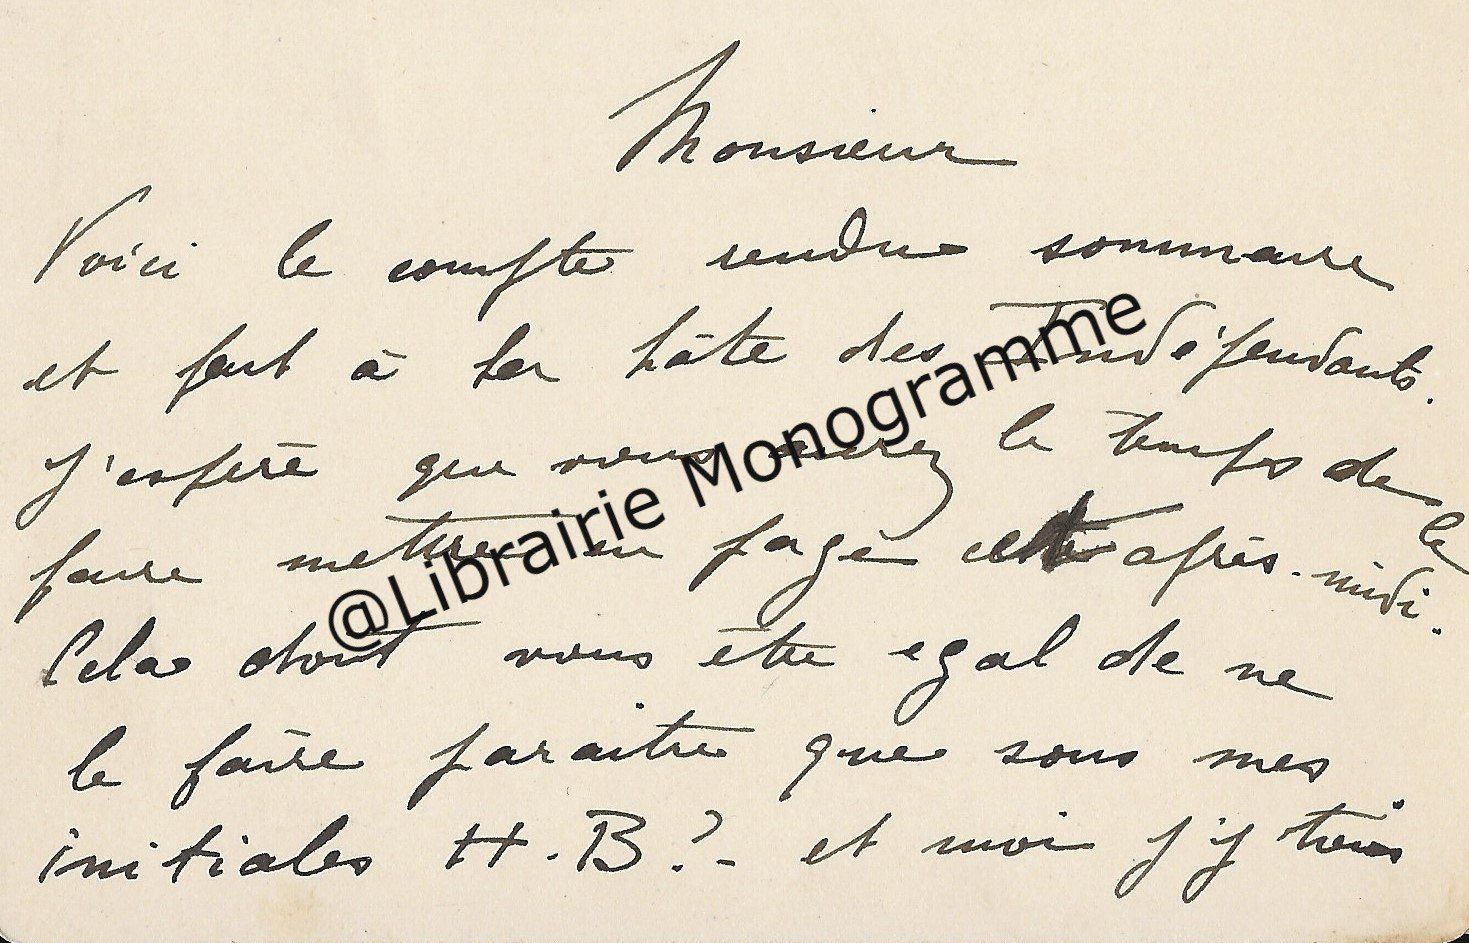 Monsieur
Voici le compte rendu sommaire
et fait à la hâte des Indépendants.
J'espère que vous aurez le temps de
le
faire mettre en page cet après-midi.
Cela doit vous être egal de ne
le faire paraitre que sous mes
initiales H.B.?- et moi j'y tiens
@Librairie Monogramme